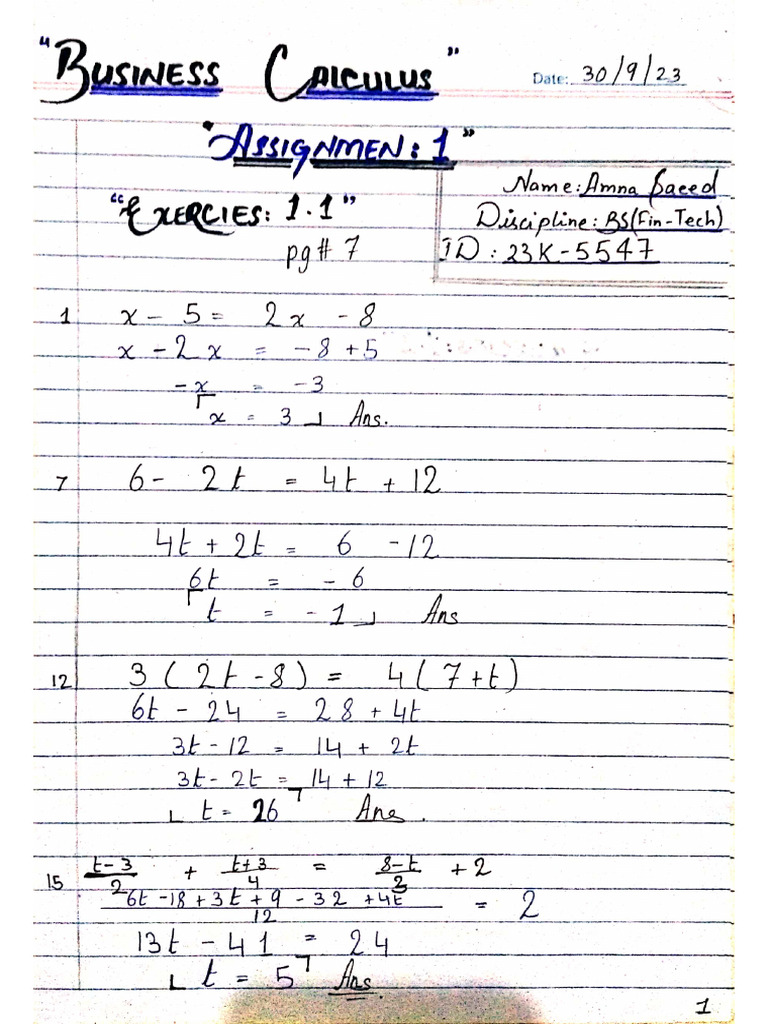 "BUSINESS CALCULUS"
Date: 30/9/23
"ASSIGNMEN: 1"
Name: Amna Saeed
"EXERCIES: 1.1"
Discipline: BS(Fin-Tech)
pg# 7
ID: 23K-5547
1 x - 5 = 2x - 8
x - 2x = -8 + 5
-x = -3
x = 3 Ans.
7 6 - 2t = 4t + 12
4t + 2t = 6 - 12
6t = -6
t = -1 Ans
12 3(2t - 8) = 4(7 + t)
6t - 24 = 28 + 4t
3t - 12 = 14 + 2t
3t - 2t = 14 + 12
t = 26 Ans.
15 t-3/2 + t+3/4 = 8-t/3 + 2
6t - 18 + 3t + 9 - 32 + 4t/12 = 2
13t - 41 = 24
t = 5 Ans.
1